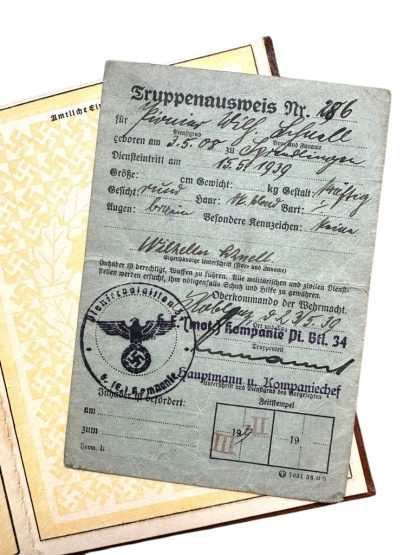 Amtliche Ei
Truppenausweis Nr. 286
für Pionier Wilh. Schnell
Dienstgrad Vor- und Zuname
geboren am 3.5.08 zu Sprendlingen
Diensteintritt am 15.5.1939
Größe: cm Gewicht: kg Gestalt: kräftig
Gesicht: rund Haar: dkblond Bart: /
Augen: braun Besondere Kennzeichen: keine
Wilhelm Schnell
Eigenhändige Unterschrift (Vor- und Zuname)
Inhaber ist berechtigt, Waffen zu führen. Alle militärischen und zivilen Dienst-
stellen werden ersucht, ihm nötigenfalls Schutz und Hilfe zu gewähren.
Oberkommando der Wehrmacht.
Koblenz, d 23/5.39
(mot) Kompanie Pi. Btl. 34
Truppenteil
Hauptmann u. Kompaniechef
Unterschrift und Dienstgrad des Vorgesetzten
Pionierbataillon 34
Kompanie
Inhaber ist befördert:
am
zum
Zeitstempel
1939 19
III II